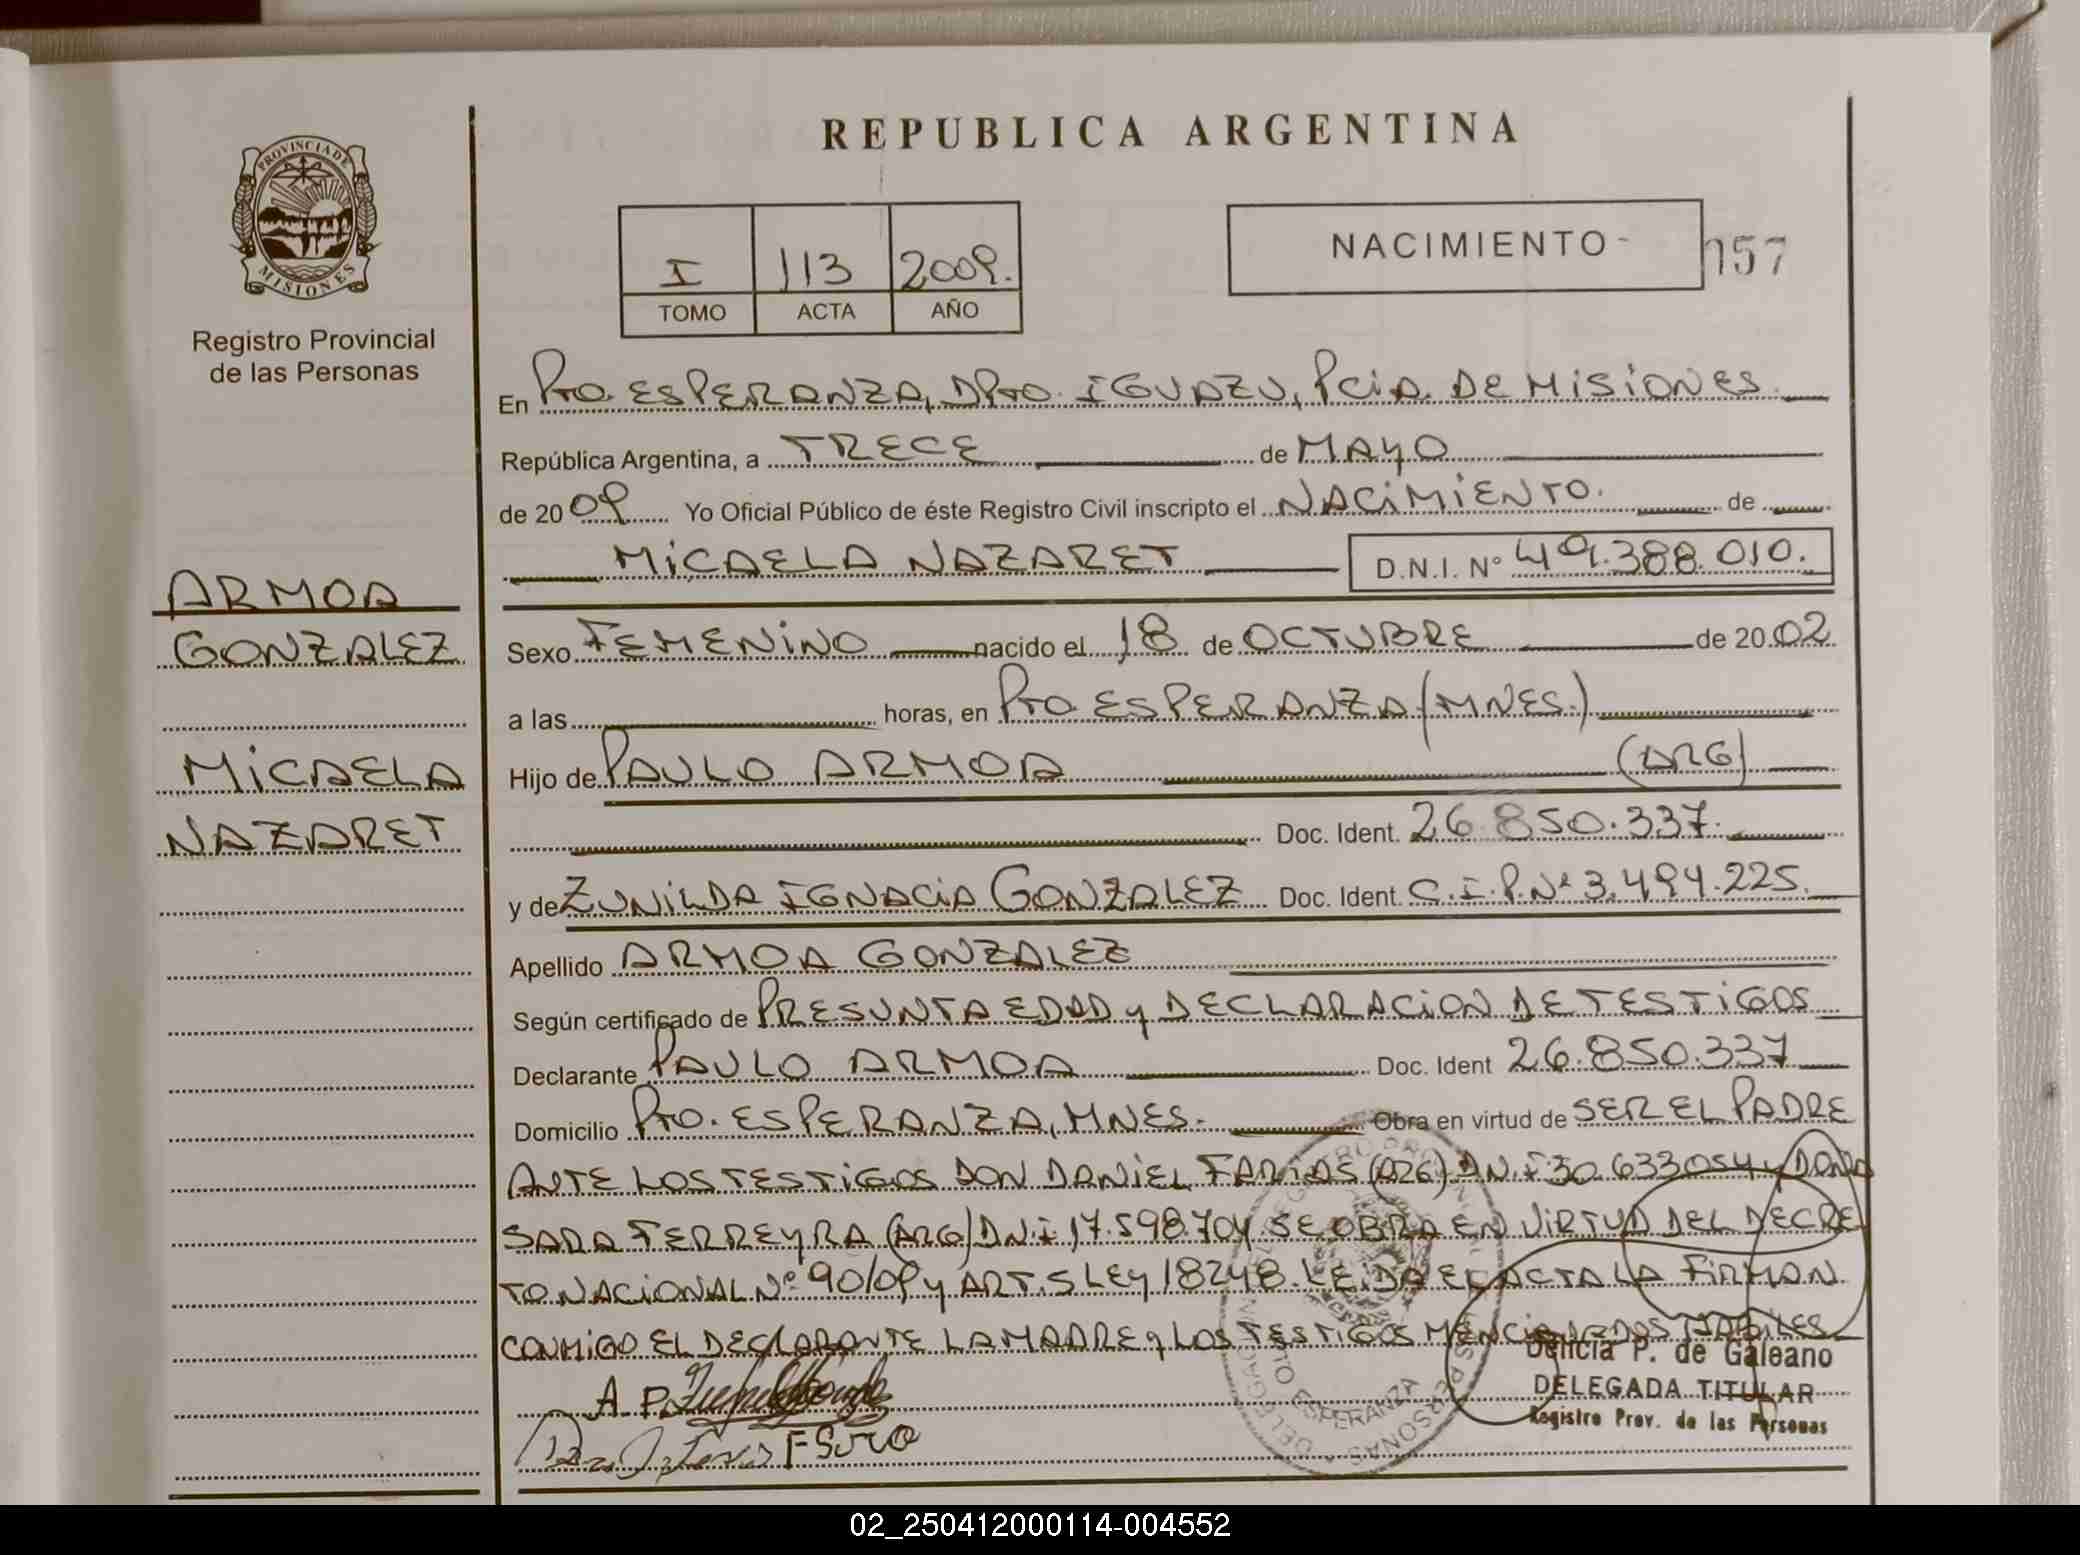 REPUBLICA ARGENTINA
PROVINCIA DE
MISIONES
Registro Provincial
de las Personas
I 113 2009.
TOMO ACTA AÑO
NACIMIENTO
157
En Pto. ESPERANZA, DPto. IGUAZU, PCiA. DE MISIONES
República Argentina, a TRECE de MAYO
de 2009 Yo Oficial Público de éste Registro Civil inscripto el NACIMIENTO. de
MICAELA NAZARET D.N.I. Nº 49.388.010.
ARMOA
GONZALEZ
MICAELA
NAZARET
Sexo FEMENINO nacido el 18 de OCTUBRE de 2002
a las horas, en Pto ESPERANZA (MNES.)
Hijo de PAULO ARMOA (ARG)
Doc. Ident. 26.850.337.
y de ZUNILDA IGNACIA GONZALEZ Doc. Ident. C.I.P.Nº 3.494.225.
Apellido ARMOA GONZALEZ
Según certificado de PRESUNTA EDAD y DECLARACION DE TESTIGOS
Declarante PAULO ARMOA Doc. Ident 26.850.337
Domicilio Pto. ESPERANZA, MNES. Obra en virtud de SER EL PADRE
ANTE LOS TESTIGOS DON DANIEL FARIAS (ARG) D.N.I 30.633054 y DOÑA
SARA FERREYRA (ARG) D.N.I 17.598.704 SE OBRA EN VIRTUD DEL DECRE
TO NACIONAL Nº 90/09 y ART. 5 LEY 18248. LEIDA EL ACTA LA FIRMAN
CONMIGO EL DECLARANTE LA MADRE y LOS TESTIGOS MENCIONADOS HABILES
Delicia P. de Galeano
DELEGADA TITULAR
Registro Prov. de las Personas
A. P.
F Saro
02_250412000114-004552